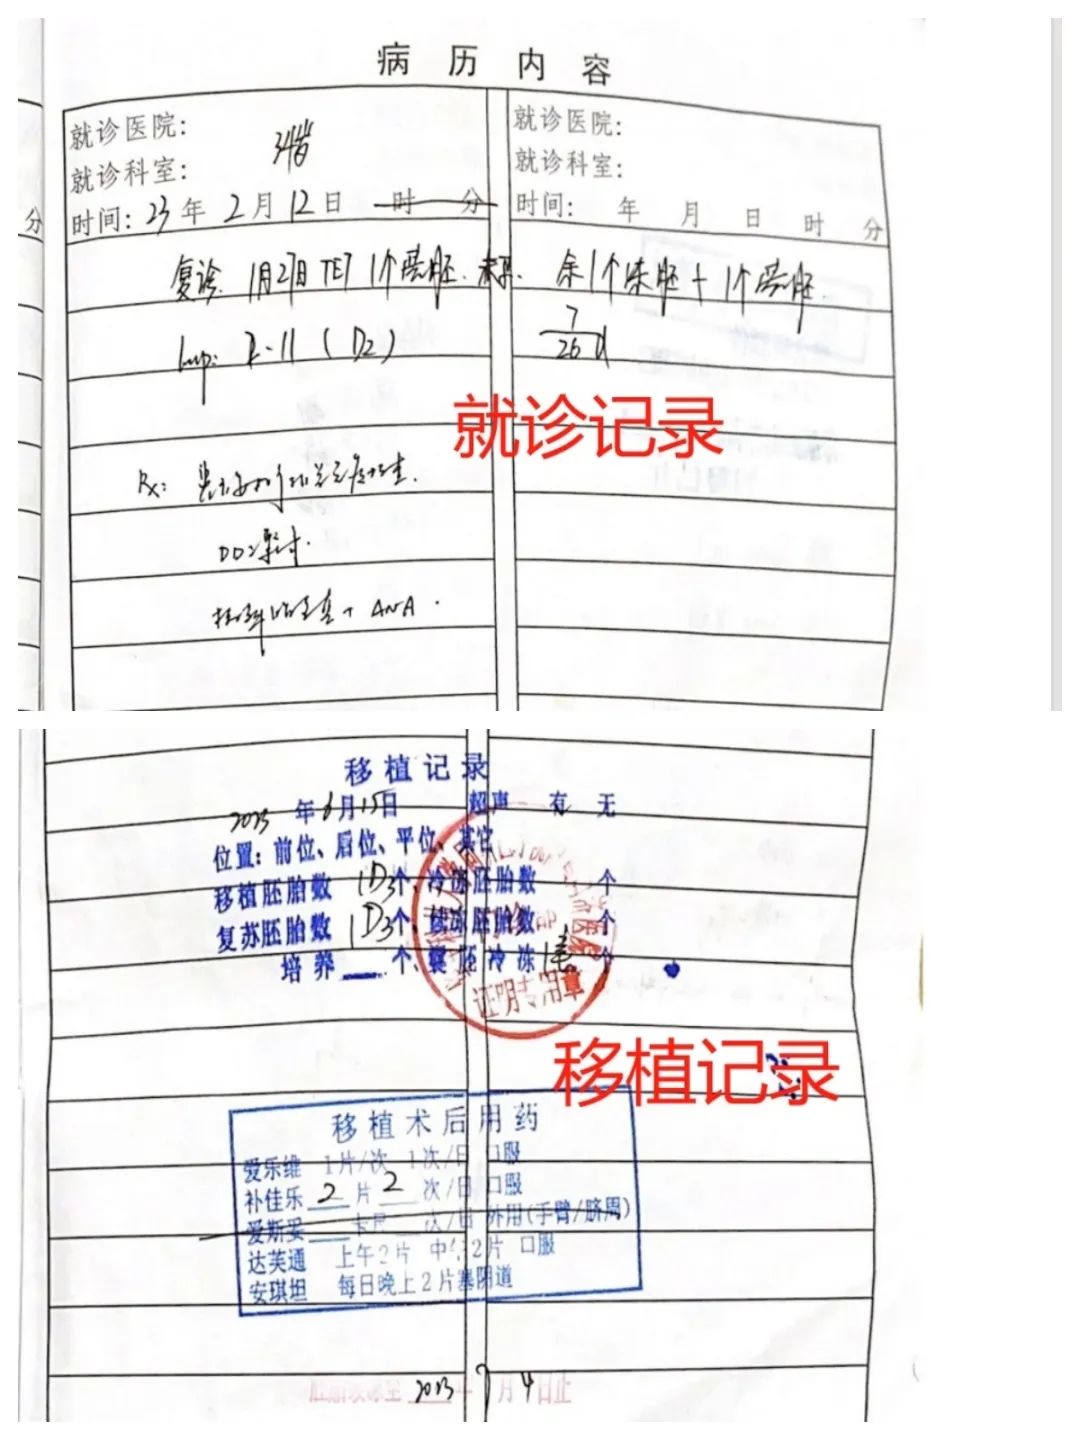 病历内容
就诊医院：
就诊科室：
时间：23年2月12日 时 分
就诊医院：
就诊科室：
时间： 年 月 日 时 分
分
复诊 1月27日 TET 1个囊胚 未孕. 余1个冻胚+1个囊胚.
Imp: 2-11 (D2) 7/26d
就诊记录
Rx:
+ ANA.
移植记录
2023年6月15日 超声 有 无
位置：前位、后位、平位、其它
移植胚胎数 1D3个、冷冻胚胎数 个
复苏胚胎数 1D3个、续冻胚胎数 个
培养 个、囊胚冷冻1 个
证明专用章
移植记录
移植术后用药
爱乐维 1片/次 1次/日 口服
补佳乐 2片 2次/日 口服
爱斯妥 次/日 外用(手臂/脐周)
达芙通 上午2片 中午2片 口服
安琪坦 每日晚上2片塞阴道
2023年7月4日止